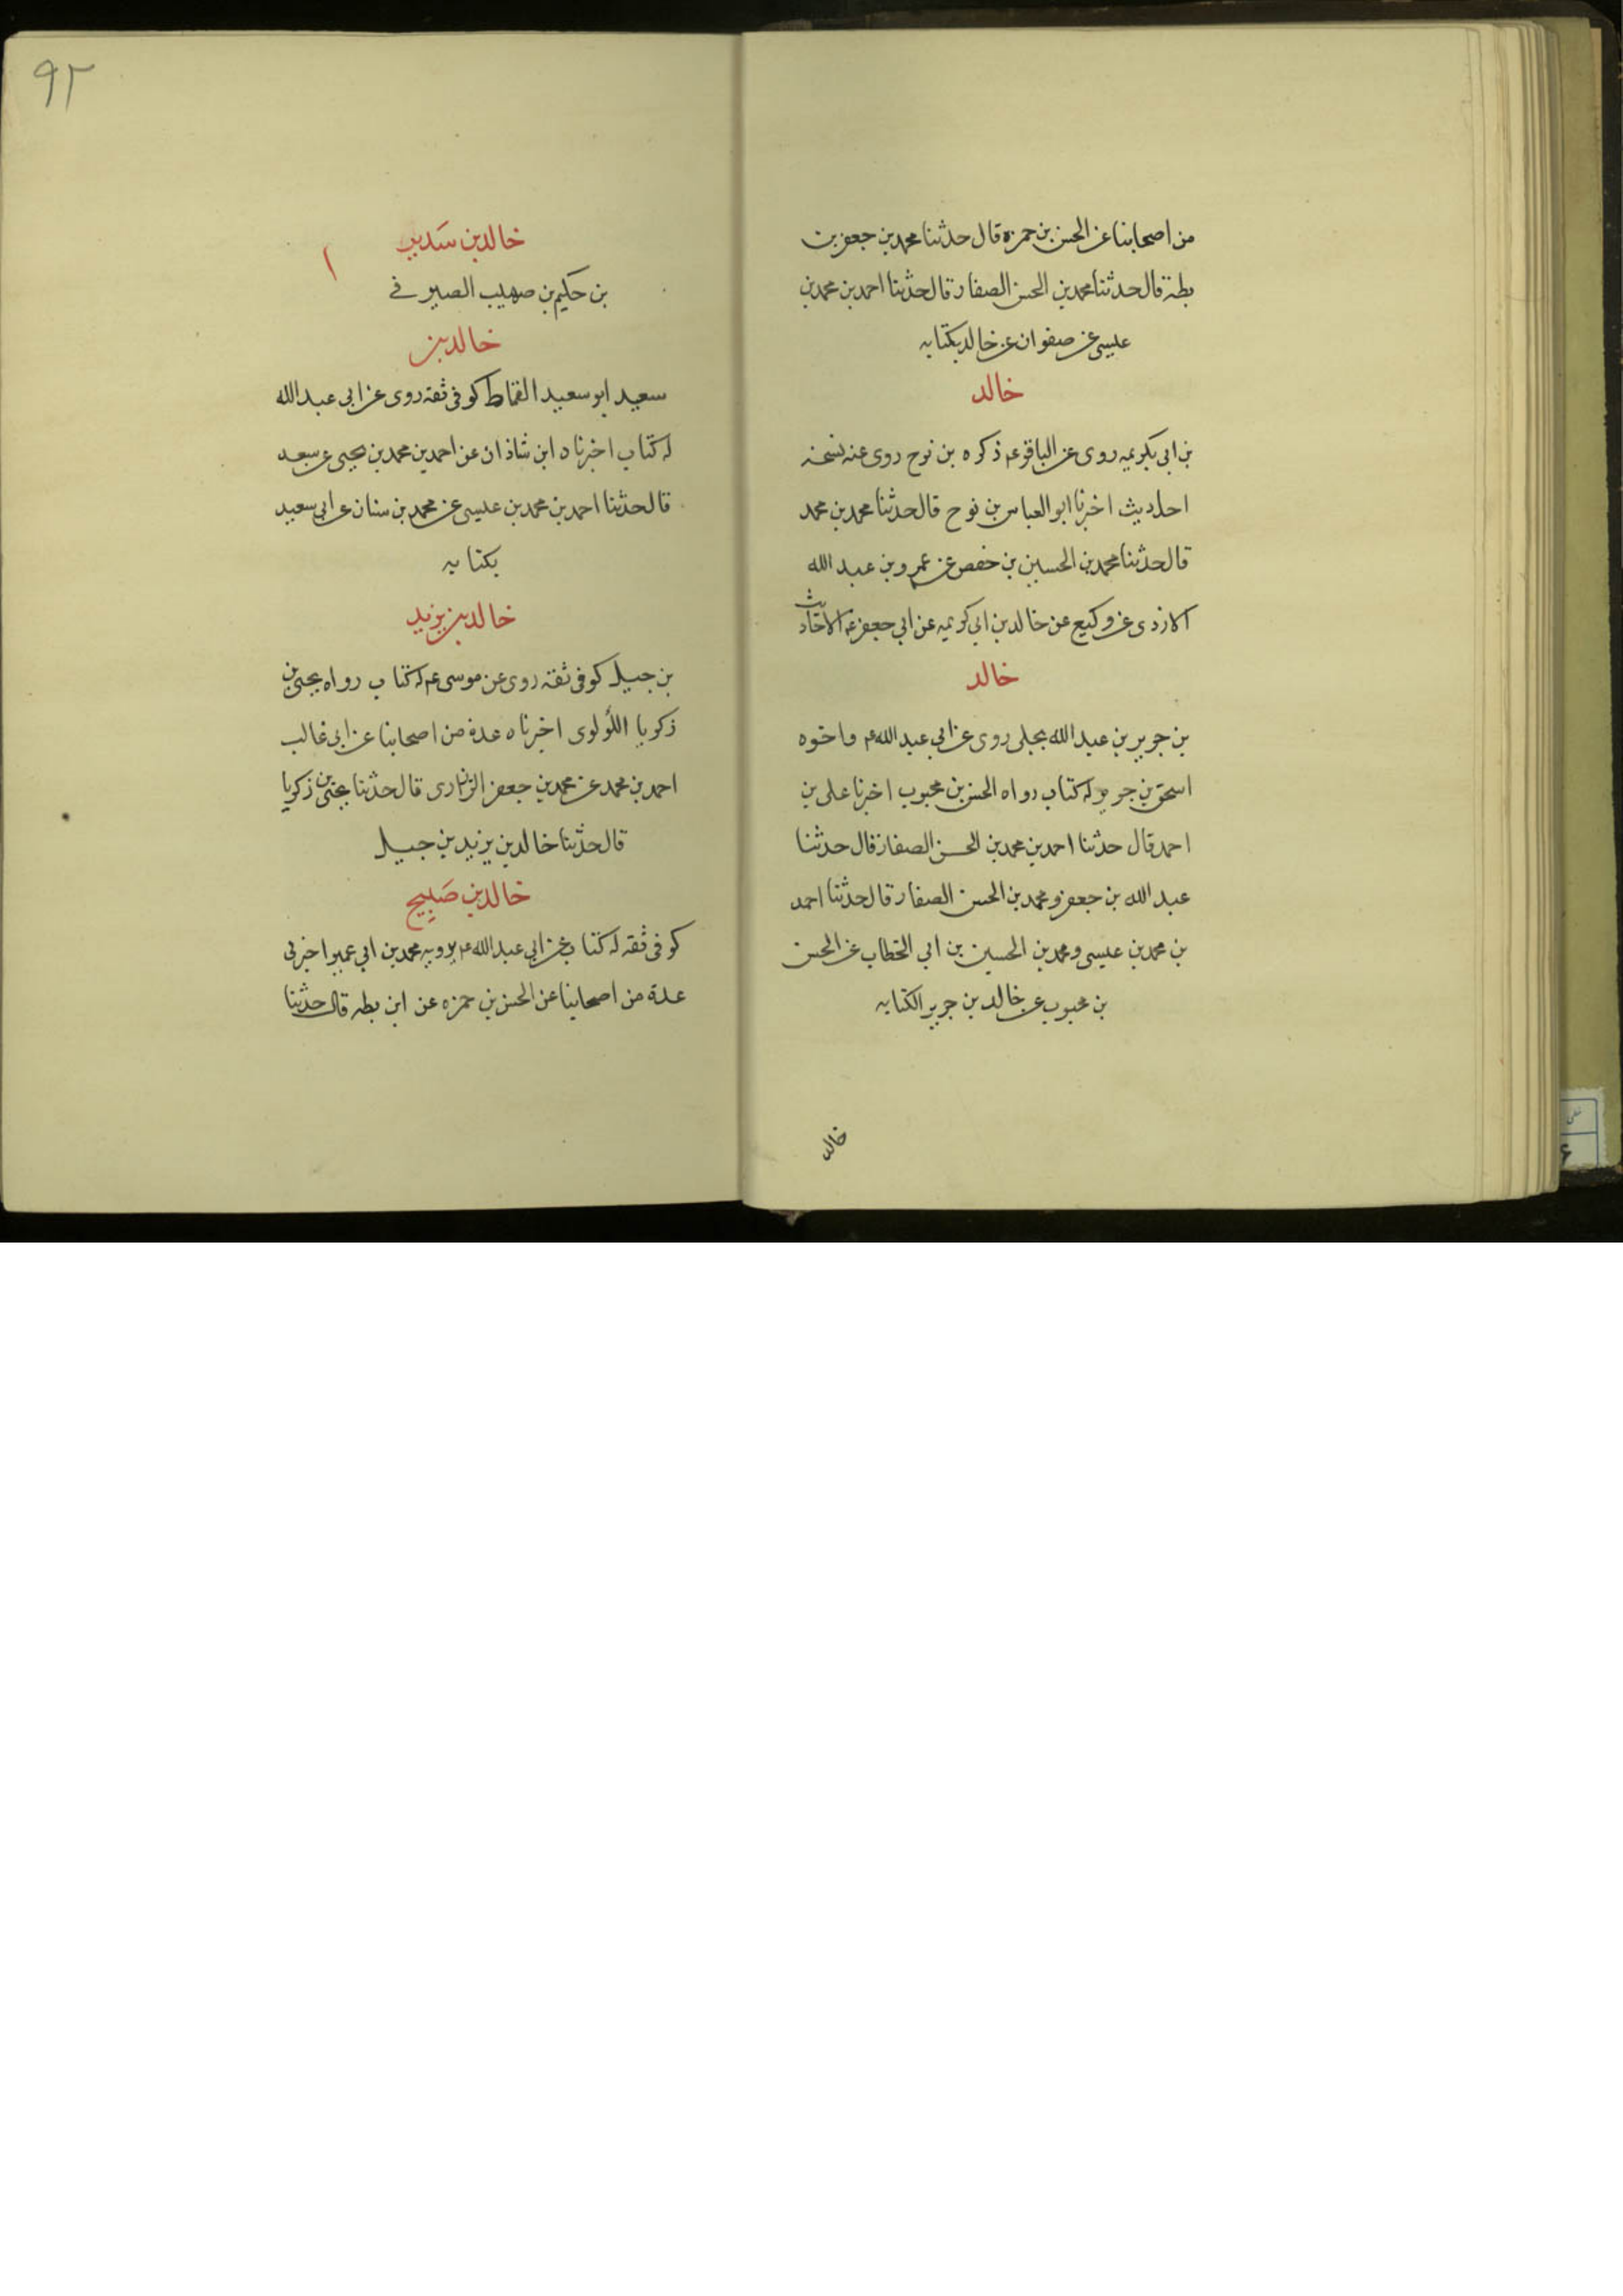 من اصحابنا عن الحسن بن حمزة قال حدثنا محمد بن جعفر بن
بطة قال حدثنا محمد بن الحسن الصفار قال حدثنا احمد بن محمد بن
عيسى عن صفوان عن خالد بكتابه
خالد
بن ابي كريمه روى عن الباقر عم ذكره بن نوح روى عنه نسخة
احاديث اخبرنا ابو العباس بن نوح قال حدثنا محمد بن محمد
قال حدثنا محمد بن الحسين بن حفص عن عمرو بن عبد الله
الازدى عن وكيع عن خالد بن ابي كريمه عن ابي جعفر عم الاحاديث
خالد
بن جرير بن عبد الله بجلى روى عن ابي عبد الله عم واخوه
اسحق بن جرير له كتاب رواه الحسن بن محبوب اخبرنا على بن
احمد قال حدثنا احمد بن محمد بن الحسن الصفار قال حدثنا
عبد الله بن جعفر ومحمد بن الحسن الصفار قال حدثنا احمد
بن محمد بن عيسى ومحمد بن الحسين بن ابي الخطاب عن الحسن
بن محبوب عن خالد بن جرير الكتابه
خالد
٩٢
خالد بن سَدير
بن حكيم بن صهيب الصيرفى
خالد بن
سعيد ابو سعيد القماط كوفى ثقة روى عن ابى عبد الله
له كتاب اخبرناه ابن شاذان عن احمد بن محمد بن يحيى عن سعد
قال حدثنا احمد بن محمد بن عيسى عن محمد بن سنان عن ابى سعيد
بكتابه
خالد بن يزيد
بن جبيل كوفى ثقة روى عن موسى عم له كتاب رواه يحيى بن
زكريا اللؤلوى اخبرناه عدة من اصحابنا عن ابى غالب
احمد بن محمد عن محمد بن جعفر الرزارى قال حدثنا يحيى بن زكريا
قال حدثنا خالد بن يزيد بن جبيل
خالد بن صَبِيح
كوفى ثقه له كتاب عن ابى عبد الله عم يرويه محمد بن ابي عمير اخبرنى
عدة من اصحابنا عن الحسن بن حمزه عن ابن بطه قال حدثنا